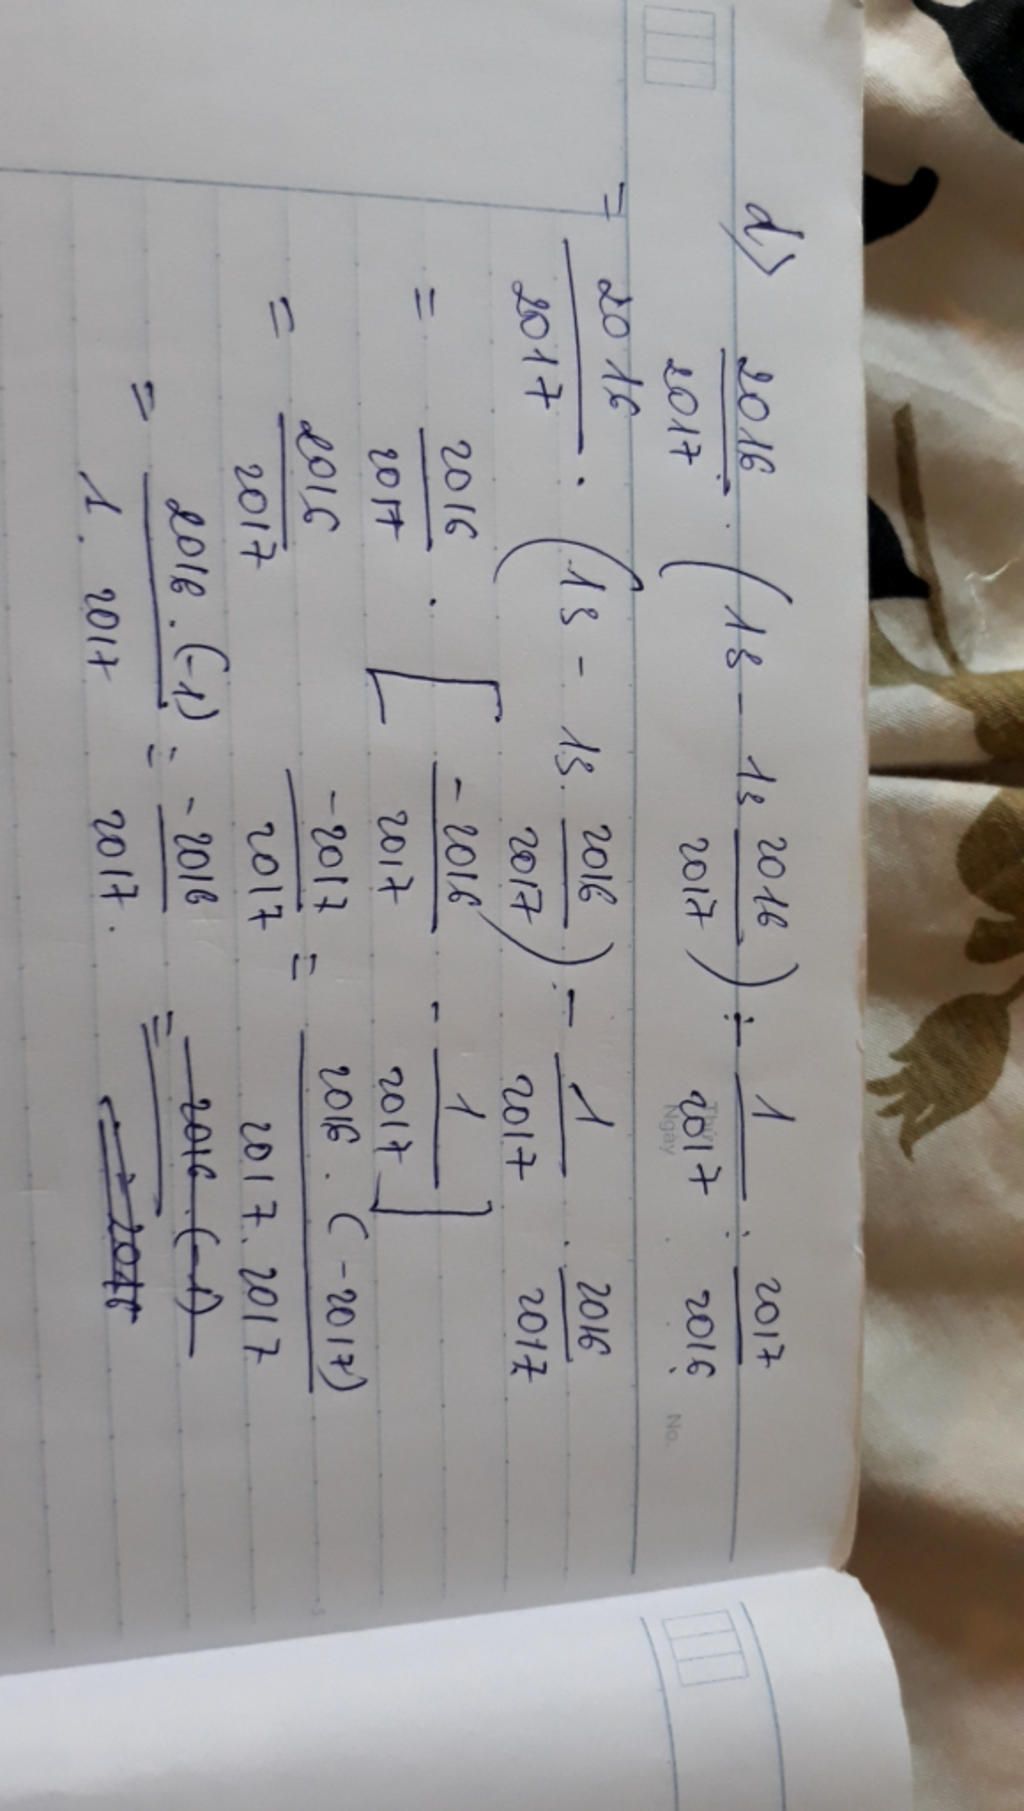 Thứ
Ngày
No.
d) 2016/2017 . (13 - 13 2016/2017) ÷ 1/2017 : 2017/2016
= 2016/2017 . (13 - 13. 2016/2017) - 1/2017 . 2016/2017
= 2016/2017 . [-2016/2017 - 1/2017]
= 2016/2017 -2017/2017 = 2016 . (-2017)/2017 . 2017
= 2016 . (-1)/1 . 2017 = -2016/2017.